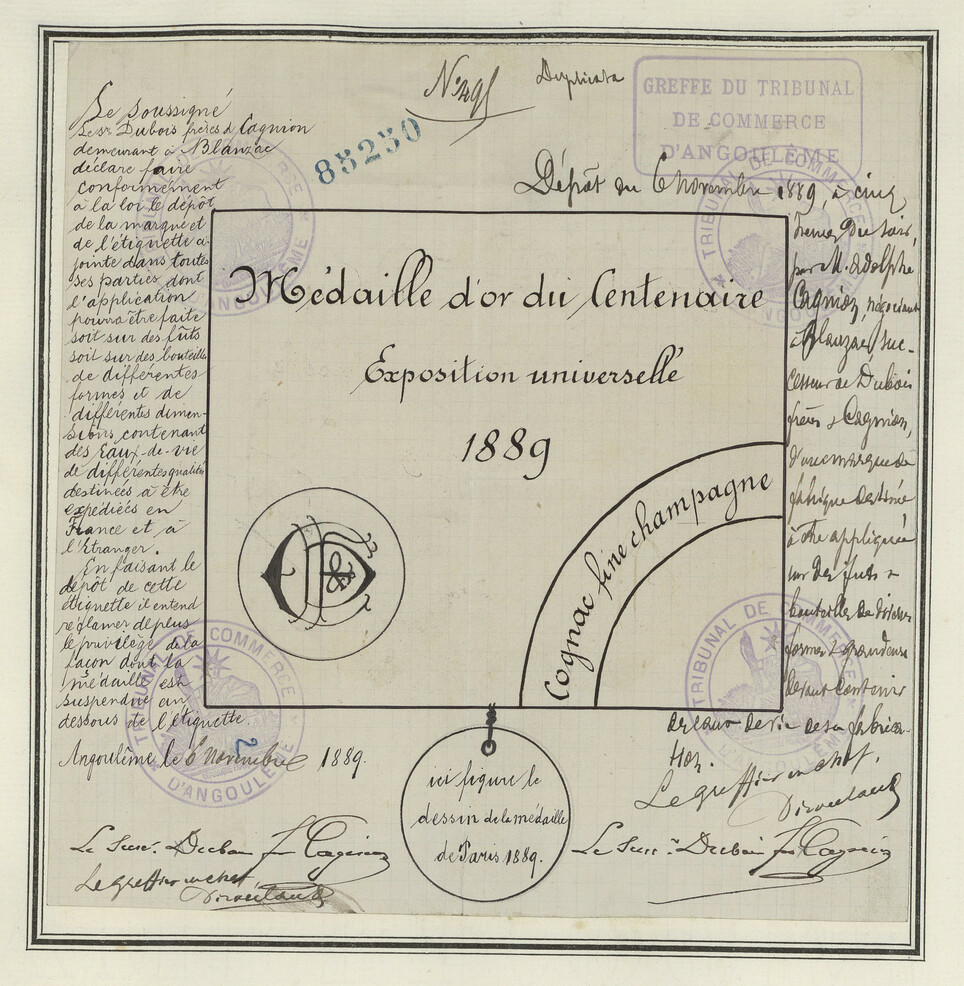 Nº 491
Duplicata
85230
GREFFE DU TRIBUNAL
DE COMMERCE
D'ANGOULÊME
Le soussigné
Le sr Dubois frères & Cagnion
demeurant à Blanzac
déclare faire
conformément
à la loi le dépôt
de la marque et
de l'étiquette ci-
jointe dans toutes
ses parties dont
l'application
pourra être faite
soit sur des fûts
soit sur des bouteilles
de différentes
formes et de
différentes dimen-
sions contenant
des Eaux-de-vie
de différentes qualités
destinées à être
expédiées en
France et à
l'Etranger.
En faisant le
dépôt de cette
étiquette il entend
réclamer de plus
le privilège de la
façon dont la
médaille est
suspendue au
dessous de l'étiquette.
Angoulême le 6 novembre 1889.
2
Le Succ. Dubois frs Cagnion
Le Greffier en chef
Médaille d'or du Centenaire
Exposition universelle
1889
Cognac fine champagne
ici figure le
dessin de la médaille
de Paris 1889.
Dépôt du 6 novembre 1889, à cinq
heures du soir,
par M. Adolphe
Cagnion, négociant
à Blanzac, suc-
cesseur de Dubois
frères & Cagnion,
d'une marque de
fabrique destinée
à être appliquée
sur des fûts &
bouteilles de diverses
formes & grandeurs
devant contenir
de l'eau de vie de sa fabrica-
tion.
Le greffier en chef,
Le Succr Dubois frs Cagnion
TRIBUNAL DE COMMERCE
D'ANGOULÊME